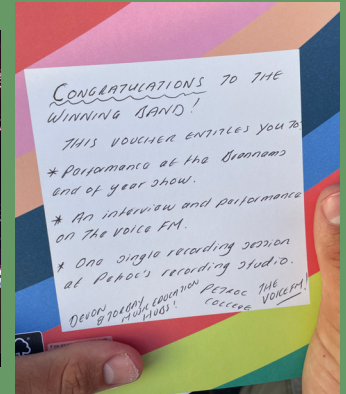 CONGRATULATIONS TO THE
WINNING BAND!
THIS VOUCHER ENTITLES YOU TO
* Performance at the Brannams
end of year show.
* An interview and performance
on The Voice FM.
* One single recording session
at Petroc's recording studio.
DEVON
& TORBAY
MUSIC EDUCATION
HUBS!
PETROC
COLLEGE
THE
VOICE FM!